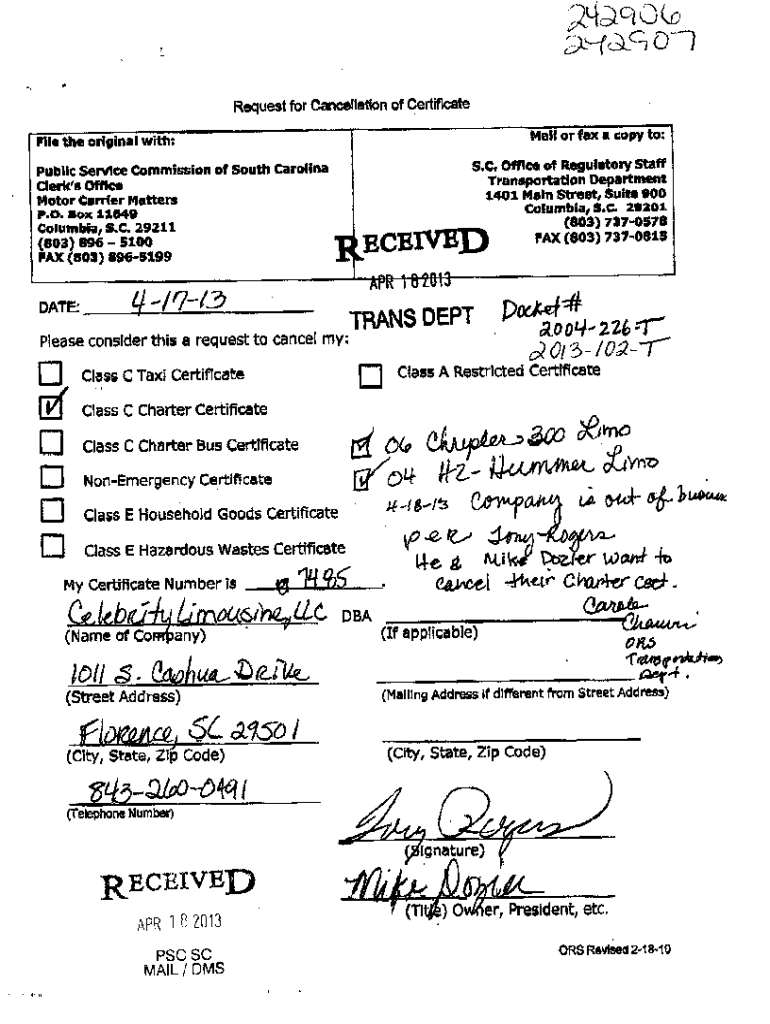 242906
242907
Request for Cancellation of Certificate
File the original with:
Public Service Commission of South Carolina
Clerk's Office
Motor Carrier Matters
P.O. Box 11649
Columbia, S.C. 29211
(803) 896 – 5100
FAX (803) 896-5199
Mail or fax a copy to:
S.C. Office of Regulatory Staff
Transportation Department
1401 Main Street, Suite 900
Columbia, S.C. 29201
(803) 737-0578
FAX (803) 737-0815
RECEIVED
APR 18 2013
TRANS DEPT
DATE: 4-17-13
Docket #
2004-226-T
2013-102-T
Please consider this a request to cancel my:
Class C Taxi Certificate
Class A Restricted Certificate
Class C Charter Certificate
Class C Charter Bus Certificate
Non-Emergency Certificate
Class E Household Goods Certificate
Class E Hazardous Wastes Certificate
06 Chrysler 300 Limo
04 H2-Hummer Limo
4-18-13 Company is out of business
per Tony Rogers
He & Mike Dozier want to
cancel their Charter cert.
Carole
ORS
Transportation
Dept.
My Certificate Number is 7485.
Celebrity Limousine, LLC DBA
(Name of Company)
(If applicable)
1011 S. Cashua Drive
(Street Address)
(Mailing Address if different from Street Address)
Florence, SC 29501
(City, State, Zip Code)
(City, State, Zip Code)
843-260-0491
(Telephone Number)
Tony Rogers
(Signature)
Mike Dozier
(Title) Owner, President, etc.
RECEIVED
APR 18 2013
PSC SC
MAIL / DMS
ORS Revised 2-18-10